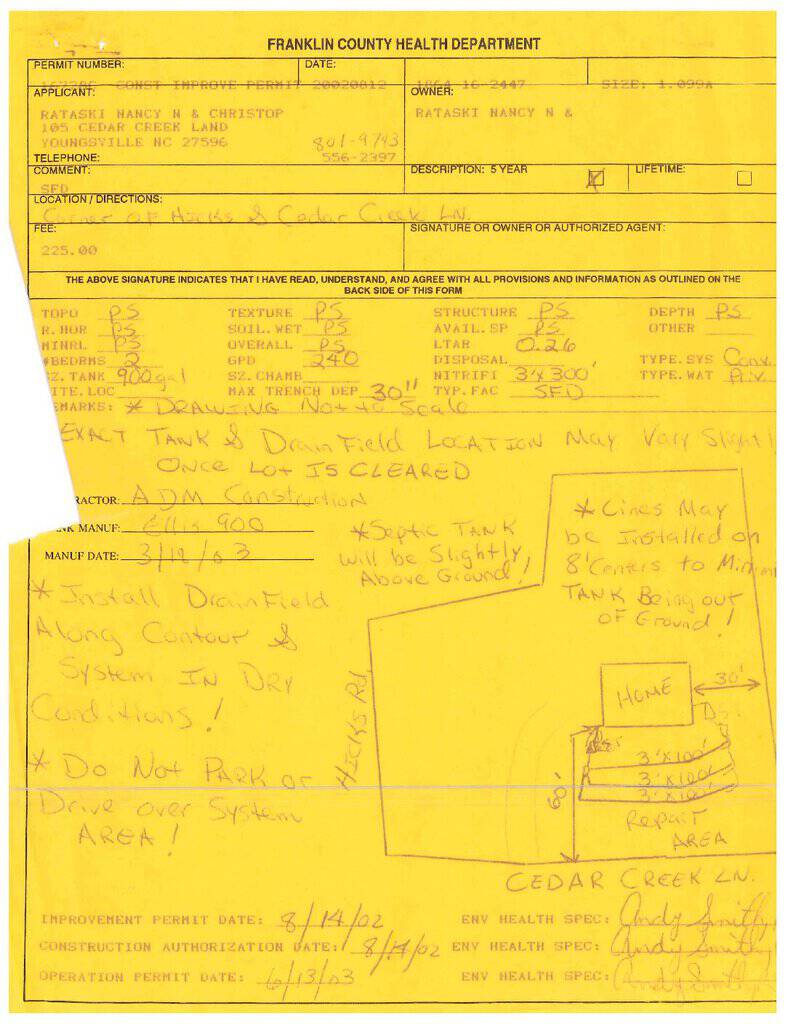 FRANKLIN COUNTY HEALTH DEPARTMENT
PERMIT NUMBER: DATE:
CONST IMPROVE PERMIT 20020812 16-2447 SIZE: 1.099A
APPLICANT: OWNER:
RATASKI NANCY N & CHRISTOP RATASKI NANCY N &
105 CEDAR CREEK LAND
YOUNGSVILLE NC 27596 801-9743
TELEPHONE: 556-2397
COMMENT: DESCRIPTION: 5 YEAR LIFETIME:
SFD
LOCATION / DIRECTIONS:
Corner of Hicks & Cedar Creek LN.
FEE: SIGNATURE OR OWNER OR AUTHORIZED AGENT:
225.00
THE ABOVE SIGNATURE INDICATES THAT I HAVE READ, UNDERSTAND, AND AGREE WITH ALL PROVISIONS AND INFORMATION AS OUTLINED ON THE
BACK SIDE OF THIS FORM
TOPO PS TEXTURE PS STRUCTURE PS DEPTH PS
R.HOR PS SOIL.WET PS AVAIL.SP PS OTHER
MINRL PS OVERALL PS LTAR 0.26
#BEDRMS 2 GPD 240 DISPOSAL TYPE.SYS Conv.
SZ.TANK 900gal SZ.CHAMB NITRIFI 3'x300' TYPE.WAT Priv
ITE.LOC MAX TRENCH DEP 30" TYP.FAC SFD
EMARKS: * DRAWING Not to Scale
EXACT TANK & Drain Field LOCATION May Vary Slightl
ONCE LOT IS CLEARED
RACTOR: ADM Construction
NK MANUF: Ellis 900
MANUF DATE: 3/12/03
* Septic TANK
will be Slightly
Above Ground!
* Lines May
be Installed on
8' Centers to Minim
TANK Being out
OF Ground!
* Install DrainField
Along Contour &
System IN DRY
Conditions!
* Do Not PARK or
Drive over System
AREA!
Hicks Rd.
HOME
30'
60'
3'x100'
3'x100'
3'x100'
Repair
AREA
CEDAR CREEK LN.
IMPROVEMENT PERMIT DATE: 8/14/02 ENV HEALTH SPEC: Andy Smith
CONSTRUCTION AUTHORIZATION DATE: 8/14/02 ENV HEALTH SPEC: Andy Smith
OPERATION PERMIT DATE: 6/13/03 ENV HEALTH SPEC: Andy Smith